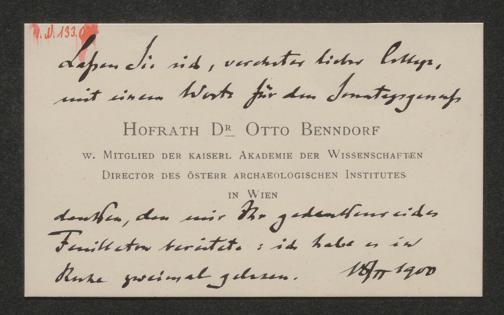 I. N. 193.0
Laßen Sie sich, verehrter lieber College,
mit einem Worte für den Sonntagsgenuß
HOFRATH DR OTTO BENNDORF
W. MITGLIED DER KAISERL AKADEMIE DER WISSENSCHAFTEN
DIRECTOR DES ÖSTERR ARCHAEOLOGISCHEN INSTITUTES
IN WIEN
danken, den mir Ihr gedankenreiches
Feuilleton bereitete: ich habe es in
Ruhe zweimal gelesen. 18/II 1900